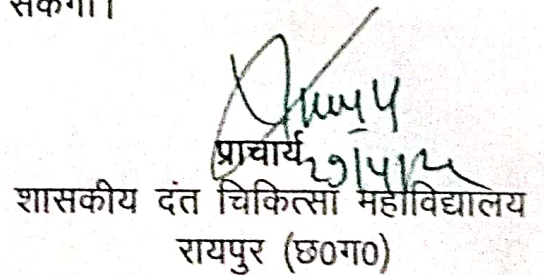 सकेगा।
प्राचार्य
शासकीय दंत चिकित्सा महाविद्यालय
रायपुर (छ0ग0)